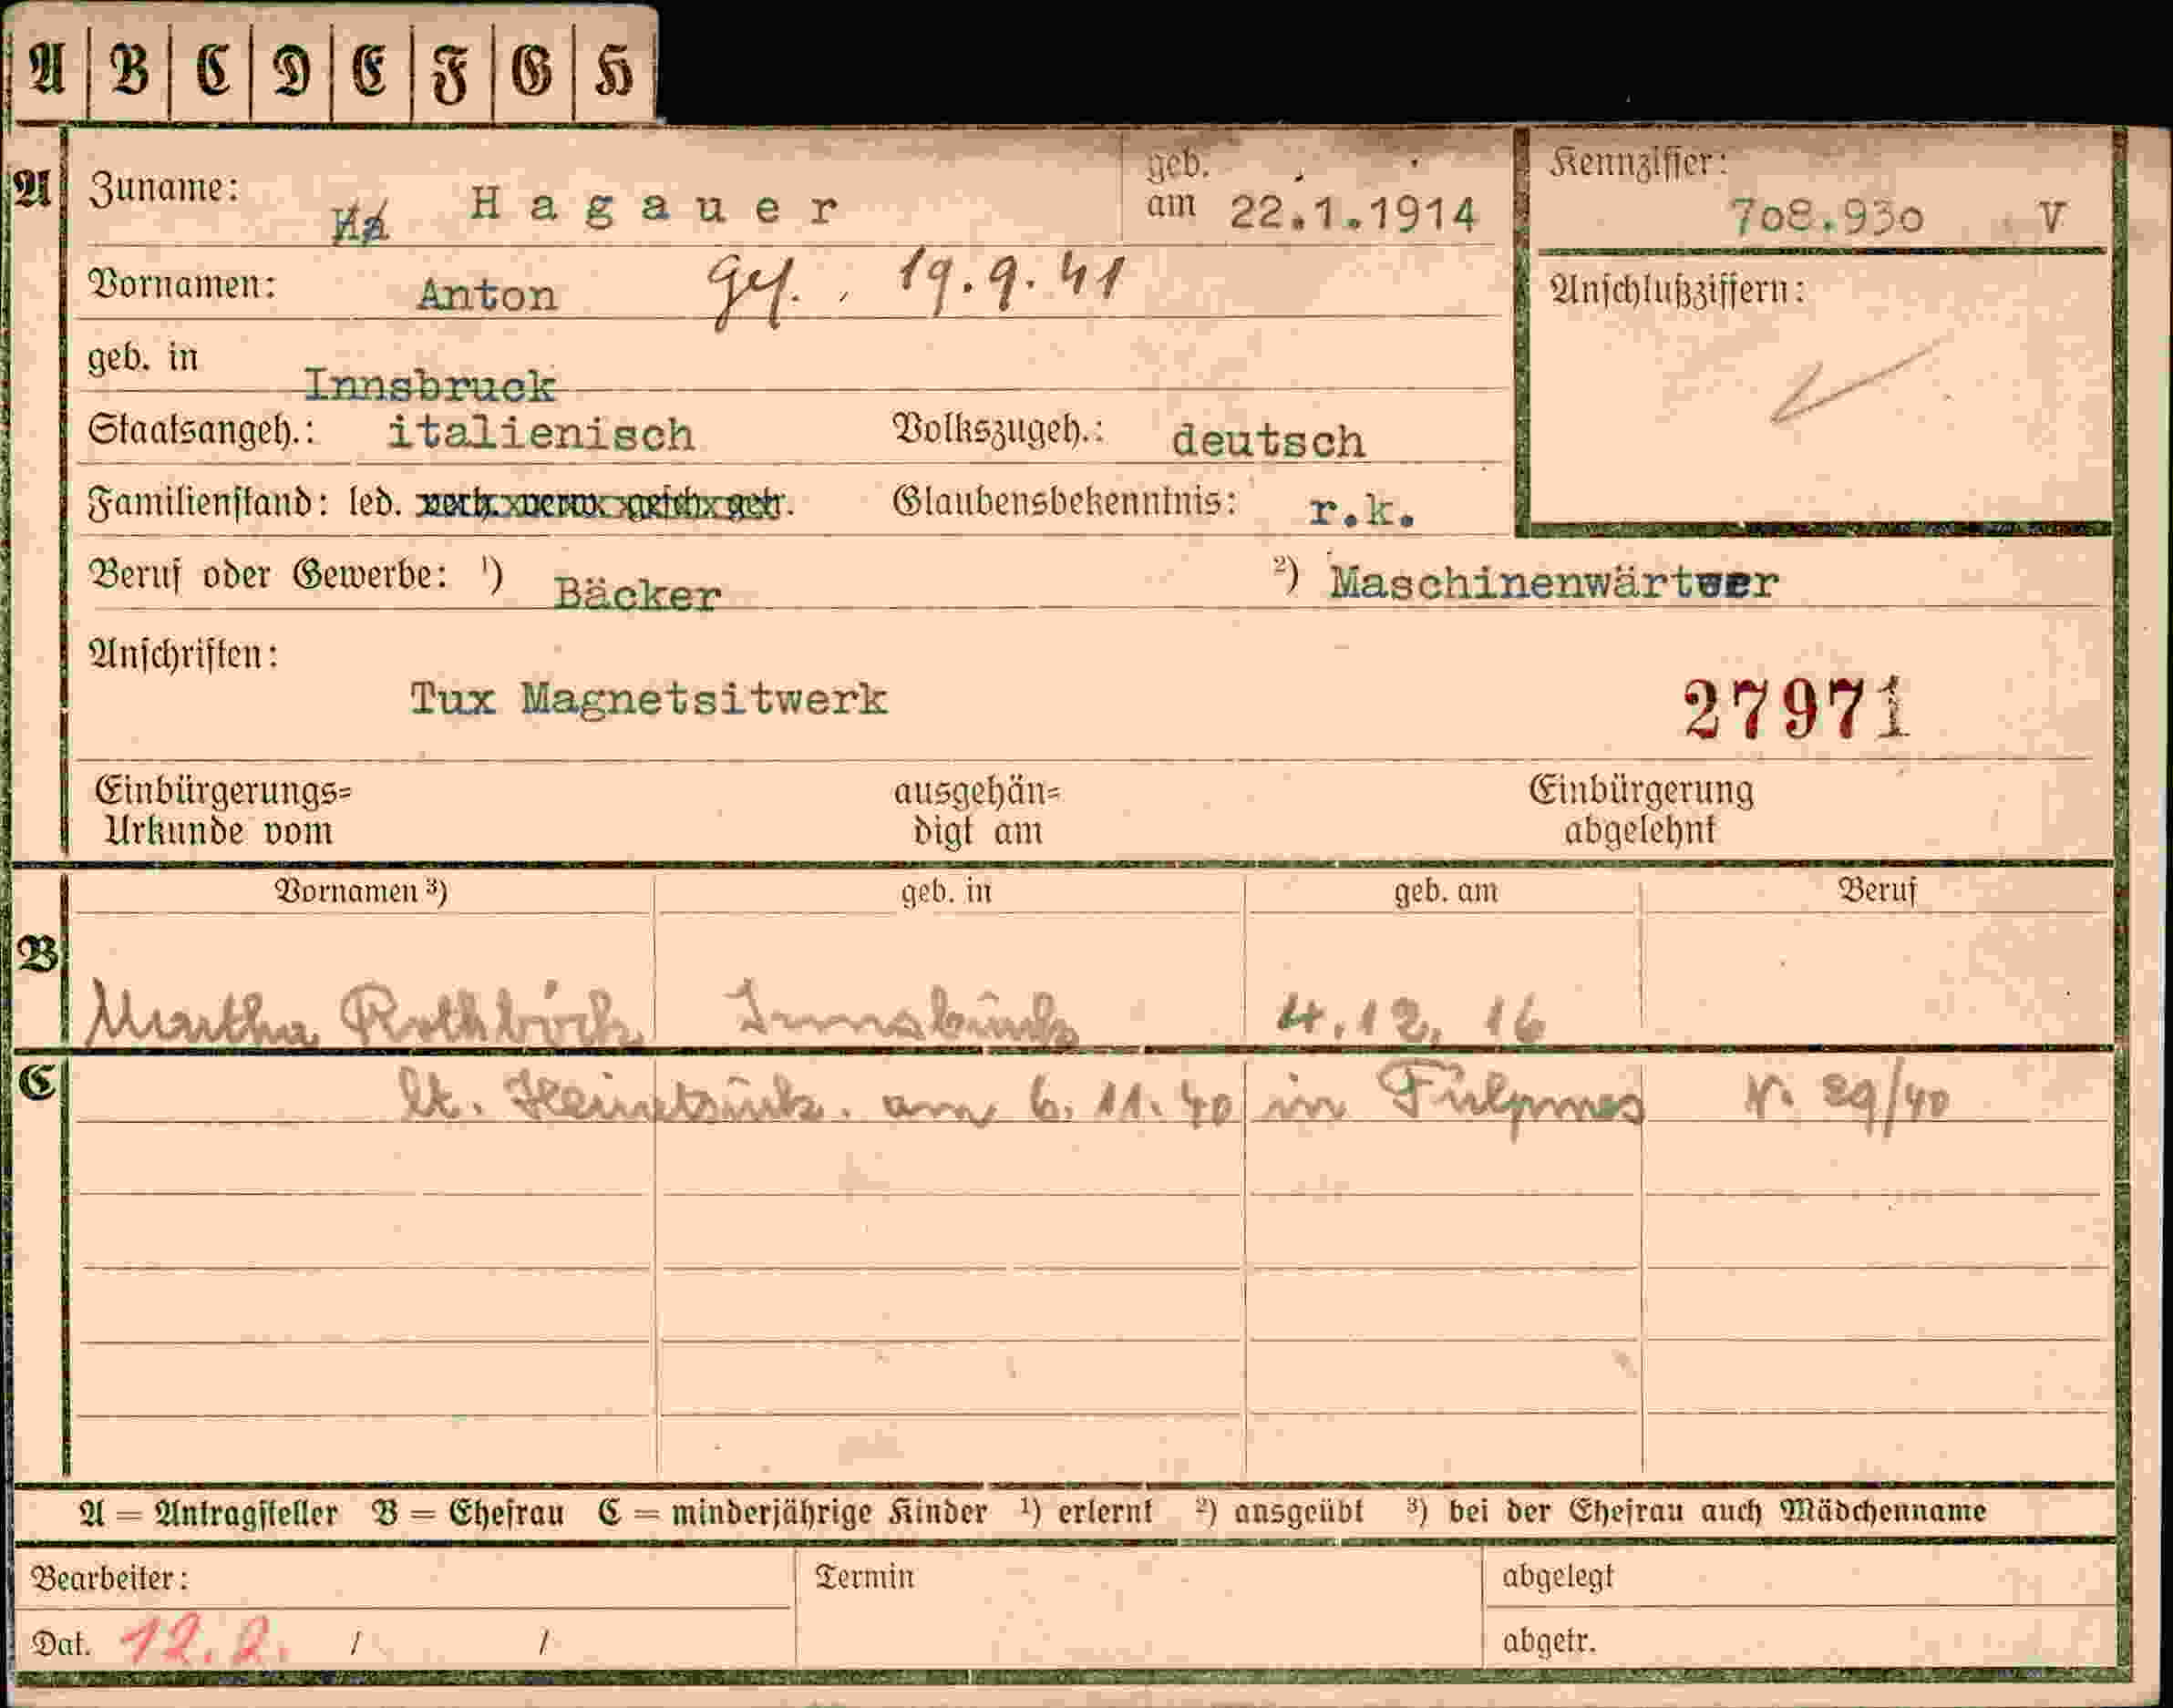 A B C D E F G H
A Zuname: Ha Hagauer geb. am 22.1.1914 Kennziffer: 708.930 V
Vornamen: Anton gef. 19.9.41 Anschlußziffern:
geb. in Innsbruck
Staatsangeh.: italienisch Volkszugeh.: deutsch
Familienstand: led. verh. verw. gesch. getr. Glaubensbekenntnis: r.k.
Beruf oder Gewerbe: 1) Bäcker 2) Maschinenwärter
Anschriften:
Tux Magnetsitwerk 27971
Einbürgerungs= ausgehän= Einbürgerung
Urkunde vom digt am abgelehnt
Vornamen 3) geb. in geb. am Beruf
B
Martha Rothböck Innsbruck 4.12.16
C lt. am 6.11.40 in Fulpmes N. 29/40
A = Antragsteller B = Ehefrau C = minderjährige Kinder 1) erlernt 2) ausgeübt 3) bei der Ehefrau auch Mädchenname
Bearbeiter: Termin abgelegt
Dat. 12.2. / / abgetr.